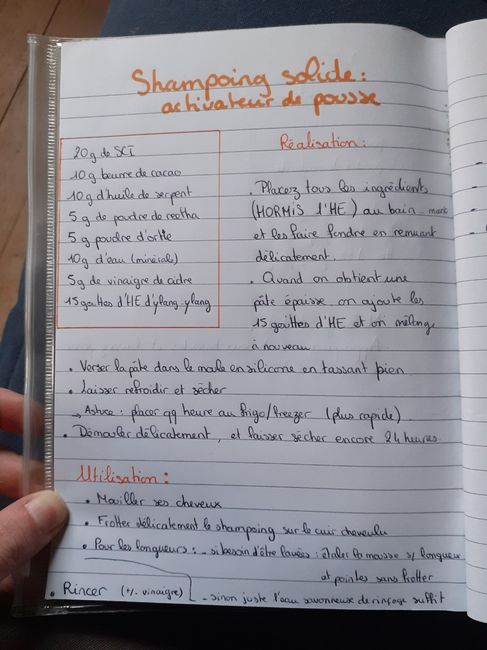 Shampoing solide :
activateur de pousse
20g de SCI
10g beurre de cacao
10g d'huile de serpent
5g de poudre de reetha
5g poudre d'ortie
10g d'eau (minérale)
5g de vinaigre de cidre
15 gouttes d'HE d'ylang-ylang
Réalisation :
. Placez tous les ingrédients
(HORMIS l'HE) au bain-marie
et les faire fondre en remuant
délicatement.
. Quand on obtient une
pâte épaisse on ajoute les
15 gouttes d'HE et on mélange
à nouveau
• Verser la pâte dans le moule en silicone en tassant bien.
• Laisser refroidir et sécher
→ Astuce : placer qq heure au frigo/freezer (plus rapide)
• Démouler délicatement, et laisser sécher encore 24 heures.
Utilisation :
• Mouiller ses cheveux
• Frotter délicatement le shampoing sur le cuir chevelu
• Pour les longueurs : - si besoin d'être lavées : étaler la mousse s/ longueur
et pointes sans frotter
- sinon juste l'eau savonneuse de rinçage suffit
• Rincer (+/- vinaigre)